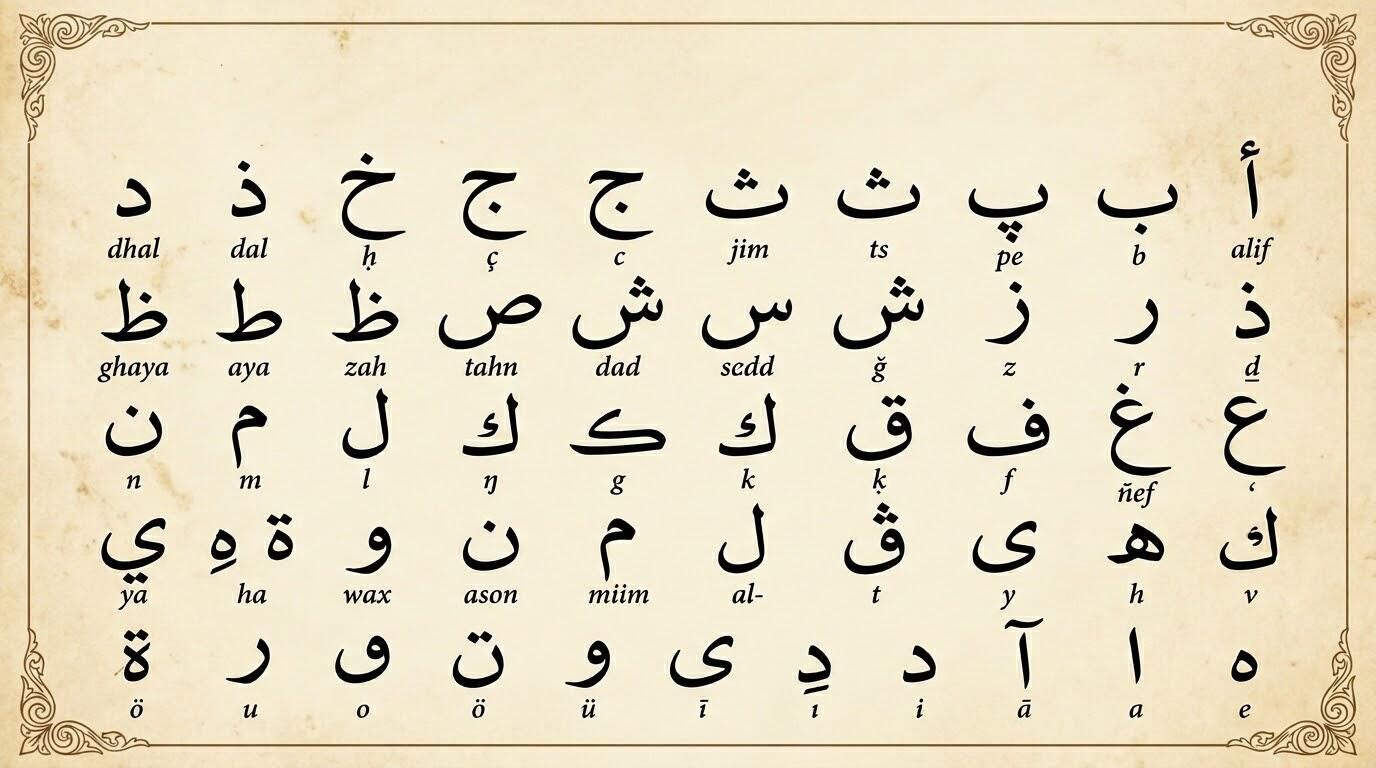 أ ب پ ث ث ج ج خ ذ د
alif b pe ts jim c ç ḥ dal dhal
ذ ر ز ش س ش ص ظ ط ظ
ḏ r z ğ sedd dad tahn zah aya ghaya
ع غ ف ق ك ڪ ك ل م ن
ʿ ñef f ḳ k g ŋ l m n
ك ه ى ڨ ل م ن و ة هِ ي
v h y t al- miim ason wax ha ya
ه ا آ د دِ ى و ت ٯ ر ة
e a ā i ı ī ü ö o u ö